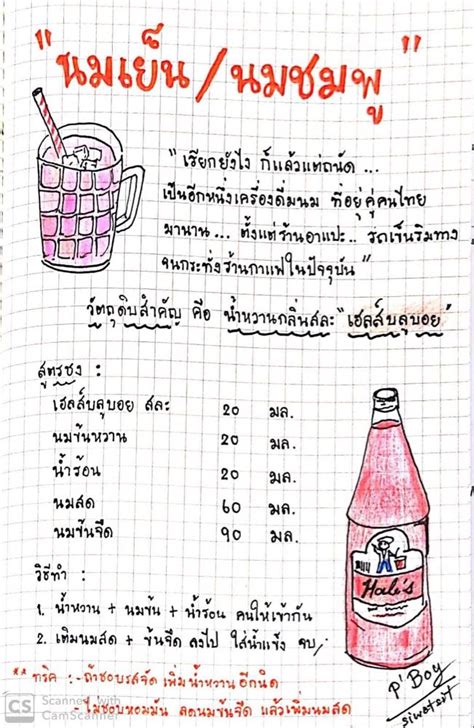 "นมเย็น / นมชมพู"
"เรียกยังไง ก็แล้วแต่ถนัด ...
เป็นอีกหนึ่งเครื่องดื่มนม ที่อยู่คู่คนไทย
มานาน ... ตั้งแต่ร้านอาแปะ.. รถเข็นริมทาง
จนกระทั่งร้านกาแฟในปัจจุบัน"
วัตถุดิบสำคัญ คือ น้ำหวานกลิ่นสละ "เฮลส์บลูบอย"
สูตรชง :
เฮลส์บลูบอย สละ 20 มล.
นมข้นหวาน 20 มล.
น้ำร้อน 20 มล.
นมสด 60 มล.
นมข้นจืด 90 มล.
วิธีทำ :
1. น้ำหวาน + นมข้น + น้ำร้อน คนให้เข้ากัน
2. เติมนมสด + ข้นจืด ลงไป ใส่น้ำแข็ง จบ;
** ทริค : - ถ้าชอบรสจัด เพิ่มน้ำหวานอีกนิด
- ไม่ชอบหอมมัน ลดนมข้นจืด แล้วเพิ่มนมสด
Hale's
P' Boy
CS Scanned with
CamScanner